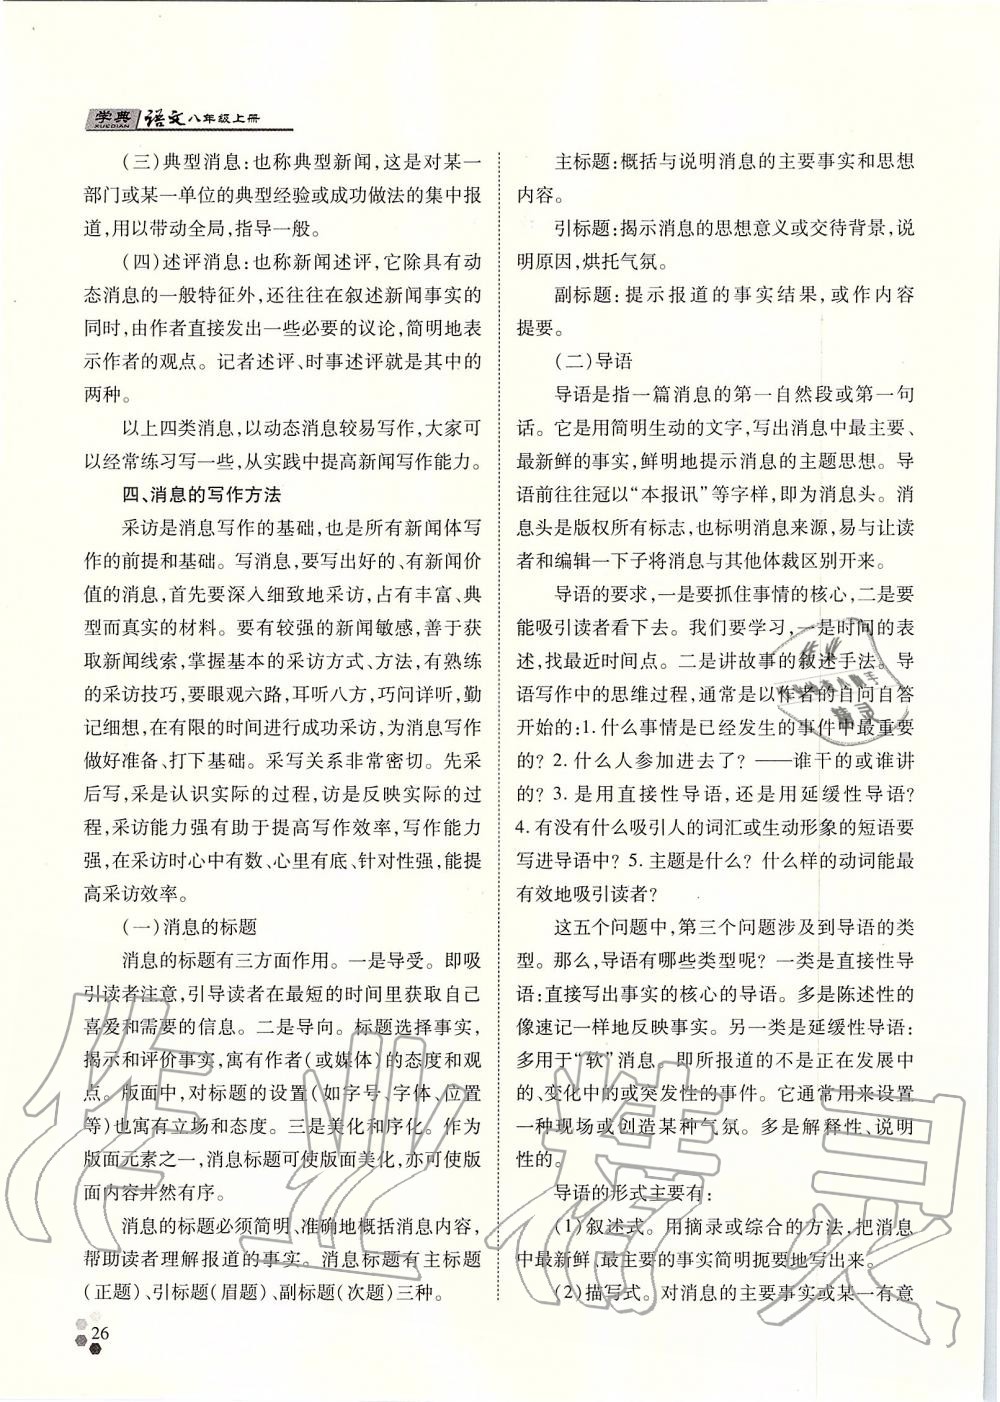 学典
XUEDIAN
语文八年级上册
(三)典型消息:也称典型新闻,这是对某一
部门或某一单位的典型经验或成功做法的集中报
道,用以带动全局,指导一般。
(四)述评消息:也称新闻述评,它除具有动
态消息的一般特征外,还往往在叙述新闻事实的
同时,由作者直接发出一些必要的议论,简明地表
示作者的观点。记者述评、时事述评就是其中的
两种。
以上四类消息,以动态消息较易写作,大家可
以经常练习写一些,从实践中提高新闻写作能力。
四、消息的写作方法
采访是消息写作的基础,也是所有新闻体写
作的前提和基础。写消息,要写出好的、有新闻价
值的消息,首先要深入细致地采访,占有丰富、典
型而真实的材料。要有较强的新闻敏感,善于获
取新闻线索,掌握基本的采访方式、方法,有熟练
的采访技巧,要眼观六路,耳听八方,巧问详听,勤
记细想,在有限的时间进行成功采访,为消息写作
做好准备、打下基础。采写关系非常密切。先采
后写,采是认识实际的过程,访是反映实际的过
程,采访能力强有助于提高写作效率,写作能力
强,在采访时心中有数、心里有底、针对性强,能提
高采访效率。
(一)消息的标题
消息的标题有三方面作用。一是导受。即吸
引读者注意,引导读者在最短的时间里获取自己
喜爱和需要的信息。二是导向。标题选择事实,
揭示和评价事实,寓有作者(或媒体)的态度和观
点。版面中,对标题的设置(如字号、字体、位置
等)也寓有立场和态度。三是美化和序化。作为
版面元素之一,消息标题可使版面美化,亦可使版
面内容井然有序。
消息的标题必须简明、准确地概括消息内容,
帮助读者理解报道的事实。消息标题有主标题
(正题)、引标题(眉题)、副标题(次题)三种。
主标题:概括与说明消息的主要事实和思想
内容。
引标题:揭示消息的思想意义或交待背景,说
明原因,烘托气氛。
副标题:提示报道的事实结果,或作内容
提要。
(二)导语
导语是指一篇消息的第一自然段或第一句
话。它是用简明生动的文字,写出消息中最主要、
最新鲜的事实,鲜明地提示消息的主题思想。导
语前往往冠以“本报讯”等字样,即为消息头。消
息头是版权所有标志,也标明消息来源,易与让读
者和编辑一下子将消息与其他体裁区别开来。
导语的要求,一是要抓住事情的核心,二是要
能吸引读者看下去。我们要学习,一是时间的表
述,找最近时间点。二是讲故事的叙述手法。导
语写作中的思维过程,通常是以作者的自问自答
开始的:1. 什么事情是已经发生的事件中最重要
的? 2. 什么人参加进去了? ——谁干的或谁讲
的? 3. 是用直接性导语,还是用延缓性导语?
4. 有没有什么吸引人的词汇或生动形象的短语要
写进导语中? 5. 主题是什么? 什么样的动词能最
有效地吸引读者?
这五个问题中,第三个问题涉及到导语的类
型。那么,导语有哪些类型呢? 一类是直接性导
语:直接写出事实的核心的导语。多是陈述性的
像速记一样地反映事实。另一类是延缓性导语:
多用于“软”消息。即所报道的不是正在发展中
的、变化中的或突发性的事件。它通常用来设置
一种现场或创造某种气氛。多是解释性、说明
性的。
导语的形式主要有:
(1)叙述式。用摘录或综合的方法,把消息
中最新鲜、最主要的事实简明扼要地写出来。
(2)描写式。对消息的主要事实或某一有意
26
作业精灵